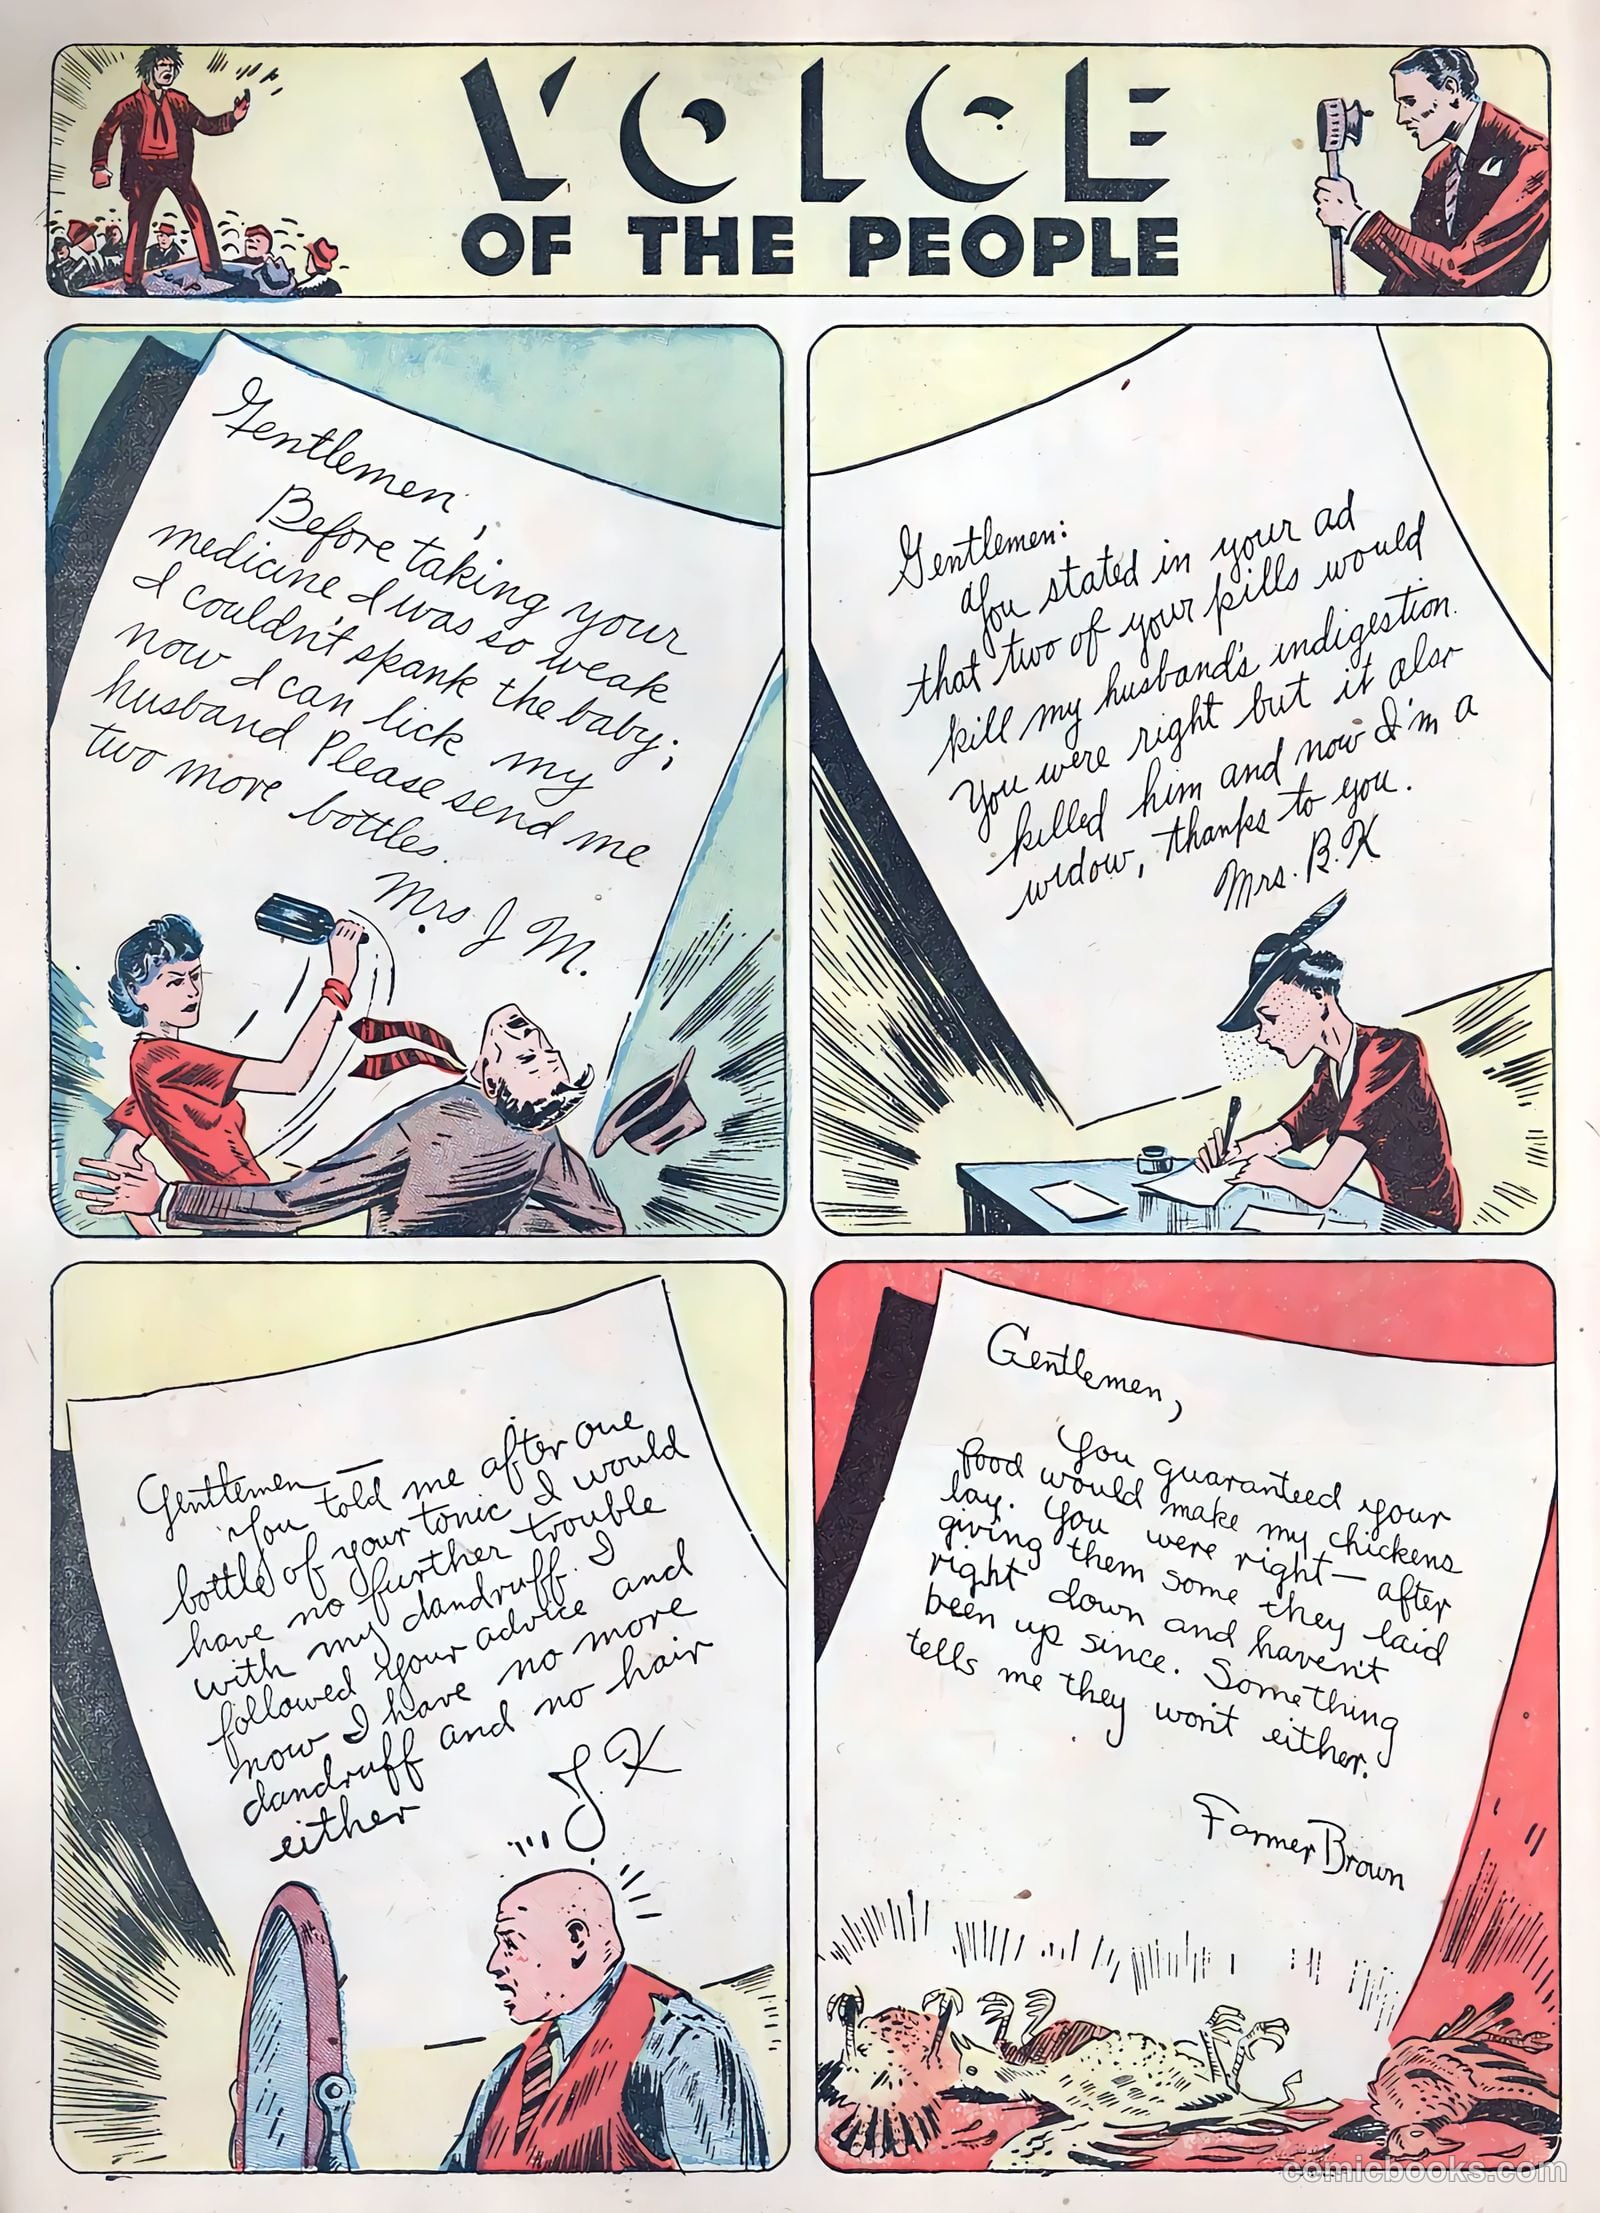 VOICE
OF THE PEOPLE
Gentlemen,
Before taking your
medicine I was so weak
I couldn't spank the baby;
now I can lick my
husband. Please send me
two more bottles.
Mrs J M.
Gentlemen:
You stated in your ad
that two of your pills would
kill my husband's indigestion.
You were right but it also
killed him and now I'm a
widow, thanks to you.
Mrs. B. K
Gentlemen —
You told me after one
bottle of your tonic I would
have no further trouble
with my dandruff. I
followed your advice and
now I have no more
dandruff and no hair
either
J. K
Gentlemen,
You guaranteed your
food would make my chickens
lay. You were right — after
giving them some they laid
right down and haven't
been up since. Something
tells me they won't either.
Farmer Brown
comicbooks.com